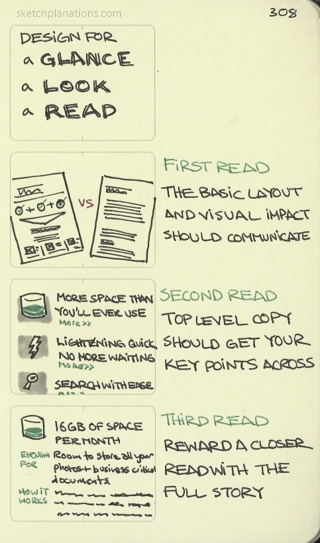 sketchplanations.com
308
DESIGN FOR
a GLANCE
a LOOK
a READ
VS
FIRST READ
THE BASIC LAYOUT
AND VISUAL IMPACT
SHOULD COMMUNICATE
MORE SPACE THAN
YOU'LL EVER USE
More >>
LIGHTENING QUICK,
NO MORE WAITING
MORE>>
SEARCH WITH EASE
SECOND READ
TOP LEVEL COPY
SHOULD GET YOUR
KEY POINTS ACROSS
16GB OF SPACE
PER MONTH
ENOUGH FOR
Room to store all your
photos + business critical
documents
HOW IT
WORKS
THIRD READ
REWARD A CLOSER
READ WITH THE
FULL STORY